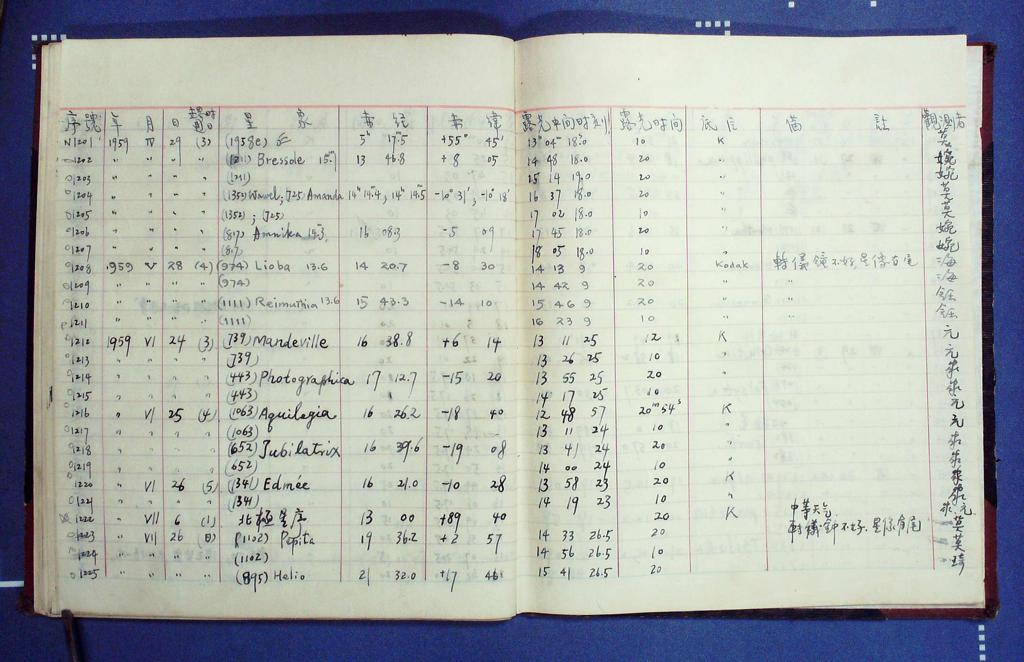 序號 年 月 日 星期 星象 赤經 赤緯 露光中间时刻 露光时间 底片 備註 觀測者
N1201 1959 IV 29 (3) (1958e) 5h 17m.5 +55° 45' 13h 04m 18s.0 10 K 莫
1202 " " " " (1211) Bressole 13 46.8 +8 05 14 48 18.0 20 " 婉
1203 " " " " (1211) 15 14 19.0 20 " 婉
1204 " " " " (1352) Wawel; (725) Amanda 14h 14m.4; 14h 14m.5 -10° 31'; -10° 18' 16 37 18.0 20 " 莫
1205 " " " " (1352); (725) 17 02 18.0 10 " 莫
1206 " " " " (817) Annika 16 08.3 -5 09 17 45 18.0 20 " 婉
1207 " " " " (817) 18 05 18.0 10 " 婉
1208 1959 V 28 (4) (974) Lioba 13.6 14 20.7 -8 30 14 13 9 20 Kodak 海
1209 " " " " (974) 14 42 9 20 " " 海
1210 " " " " (1111) Reimuthia 13.6 15 43.3 -14 10 15 46 9 20 " "
1211 " " " " (1111) 16 23 9 10 " "
1212 1959 VI 24 (3) (739) Mandeville 16 38.8 +6 14 13 11 25 12 K 元
1213 " " " " (739) 13 26 25 10 " 元
1214 " " " " (443) Photographica 17 12.7 -15 20 13 55 25 20 "
1215 " " " " (443) 14 17 25 10 "
1216 " VI 25 (4) (1063) Aquilegia 16 26.2 -18 40 12 48 57 20m54s K 元
1217 " " " " (1063) 13 11 24 10 " 元
1218 " " " " (652) Jubilatrix 16 39.6 -19 08 13 41 24 20 "
1219 " " " " (652) 14 00 24 10 "
1220 " VI 26 (5) (1341) Edmée 16 21.0 -10 28 13 58 23 20 K
1221 " " " " (1341) 14 19 23 10 "
1222 " VII 6 (1) 北極星座 13 00 +89 40 20 K 中等天气 元
1223 " VII 26 (日) (1102) Pepita 19 36.2 +2 57 14 33 26.5 20 莫
1224 " " " (1102) 14 56 26.5 10 莫
1225 " " " (895) Helio 21 32.0 +17 46 15 41 26.5 20 琦